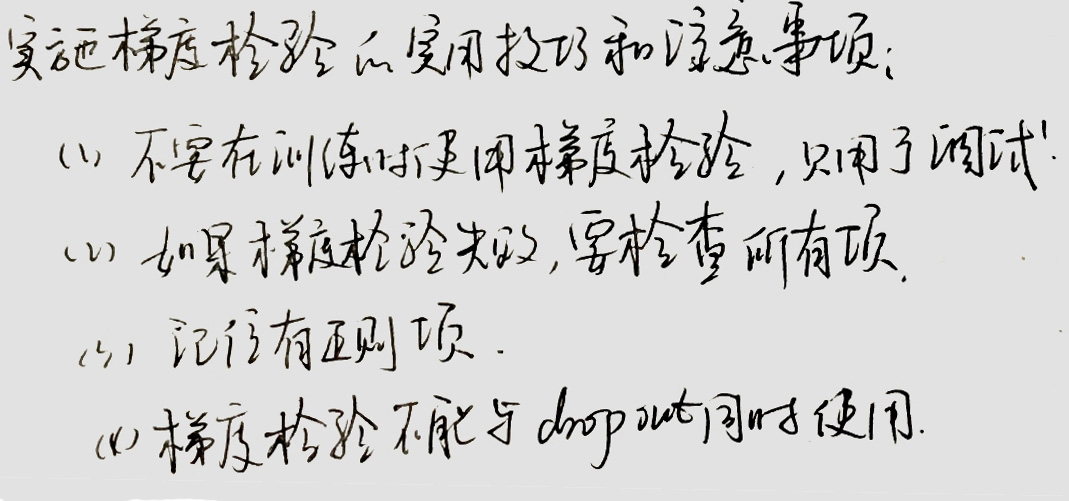 实施梯度检验的实用技巧和注意事项:
(1) 不要在训练时使用梯度检验,只用于调试.
(2) 如果梯度检验失败,要检查所有项.
(3) 记住有正则项.
(4) 梯度检验不能与dropout同时使用.